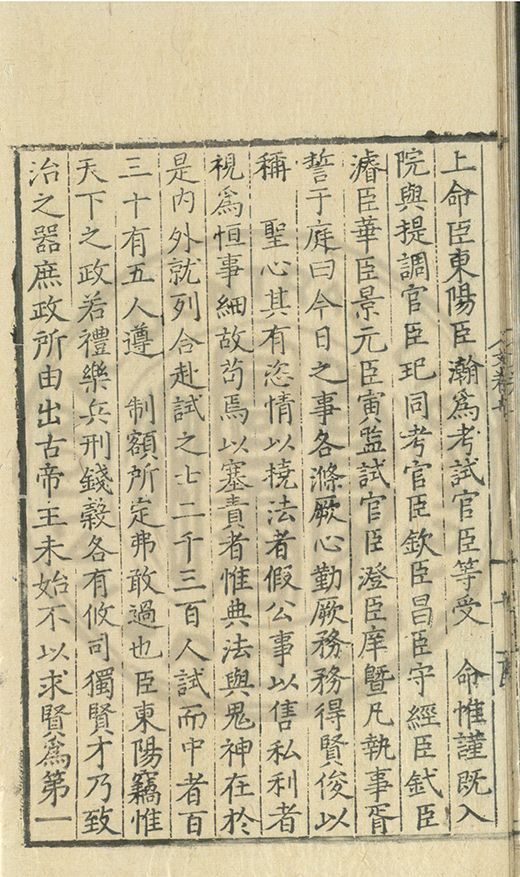 上命臣東陽臣瀚爲考試官臣等受　命惟謹既入
院與提調官臣玘同考官臣欽臣昌臣守經臣鉽臣
濬臣華臣景元臣寅監試官臣澄臣庠暨凡執事胥
誓于庭曰今日之事各滌厥心勤厥務務得賢俊以
稱　聖心其有恣情以橈法者假公事以售私利者
視爲恒事細故茍焉以塞責者惟典法與鬼神在於
是内外就列合赴試之士二千三百人試而中者百
三十有五人遵　制額所定弗敢過也臣東陽竊惟
天下之政若禮樂兵刑錢穀各有攸司獨賢才乃致
治之器庶政所由出古帝王未始不以求賢爲第一